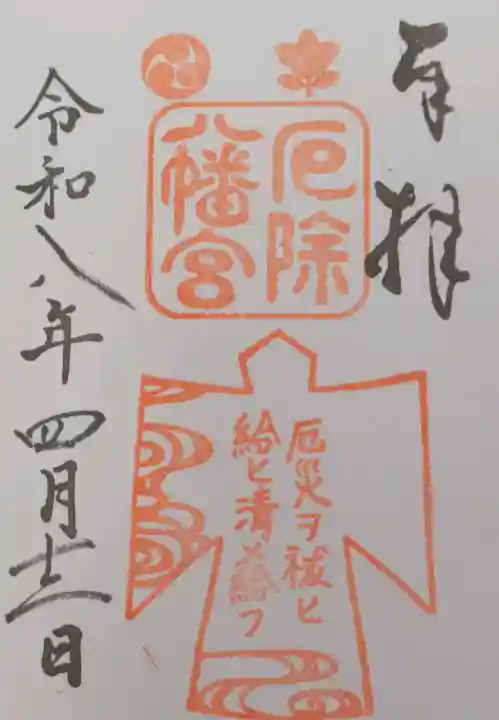 奉拝
厄除
八幡宮
厄災ヲ祓ヒ
給ヒ清メ給フ
令和八年四月十二日